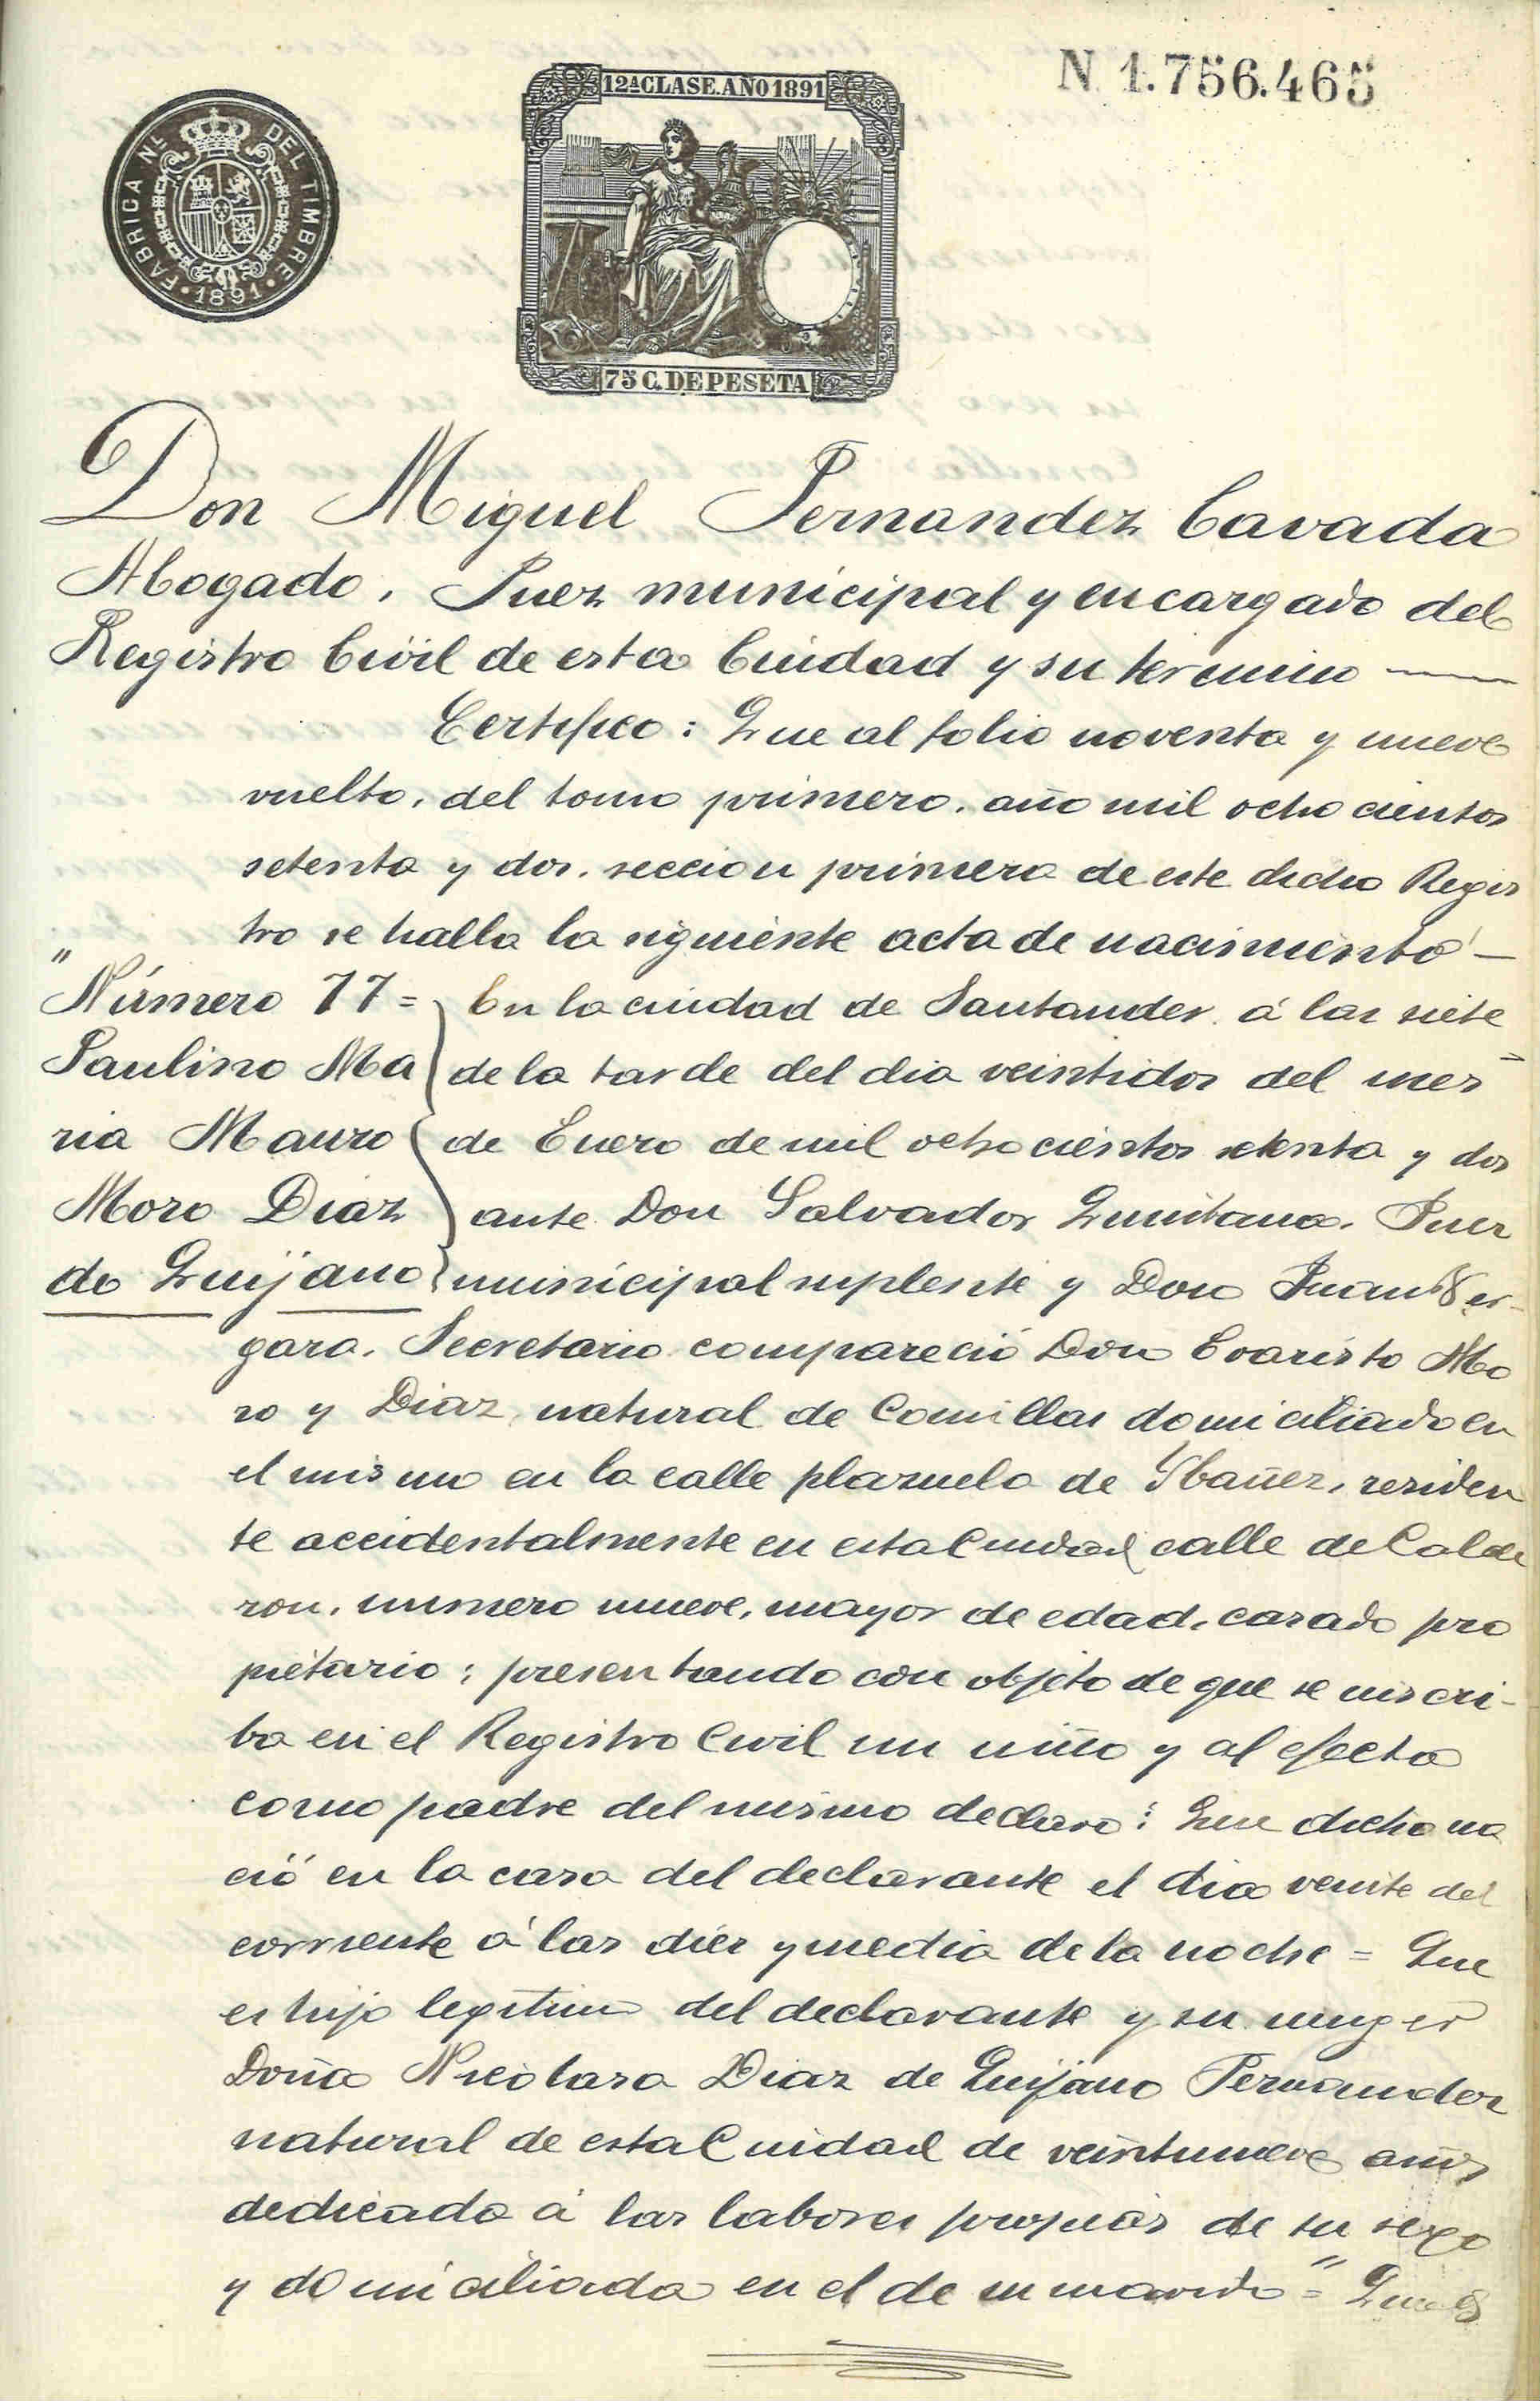 N 1.756.465
12ª CLASE. AÑO 1891
FABRICA Nˡ DEL TIMBRE
1891
75 C. DE PESETA
Don Miguel Fernandez Cavada
Abogado, Juez municipal y encargado del
Registro Civil de esta Ciudad y su termino
Certifico: Que al folio noventa y nueve
vuelto, del tomo primero, año mil ocho cientos
setenta y dos, seccion primera de este dicho Regis
tro se halla la siguiente acta de nacimiento —
"Número 77 = En la ciudad de Santander á las siete
Paulino Ma de la tarde del dia veintidos del mes
ria Mauro de Enero de mil ochocientos setenta y dos
Moro Diaz ante Don Salvador Quintana, Juez
de Quijano municipal suplente y Don Juan Ver-
gara, Secretario compareció Don Evaristo Mo
ro y Diaz, natural de Comillas domiciliado en
el mismo en la calle plazuela de Ybañez, residen
te accidentalmente en esta Ciudad calle de Calde
ron, numero nueve, mayor de edad, casado pro
pietario; presentando con objeto de que se inscri-
ba en el Registro Civil un niño y al efecto
como padre del mismo declaro: Que dicho na
ció en la casa del declarante el dia veinte del
corriente á las diez y media de la noche = Que
es hijo legitimo del declarante y su muger
Doña Nicolasa Diaz de Quijano Fernandez
natural de esta Ciudad de veintinueve años
dedicada á las labores propias de su sexo
y domiciliada en el de su marido = Que es